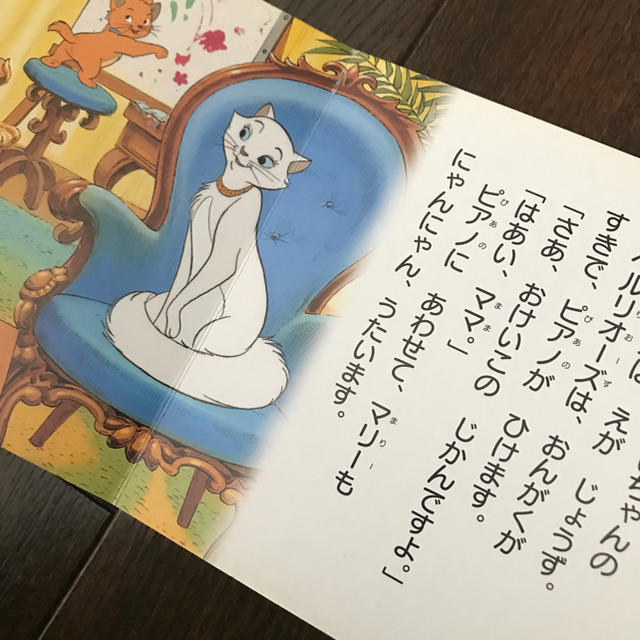 ちゃんの
は、 えが じょうず。
ルリオーズは、 おんがくが
すきで、 ピアノが ひけます。
「さあ、 おけいこの じかんですよ。」
「はあい、 ママ。」
ピアノに あわせて、 マリーも
にゃんにゃん、 うたいます。